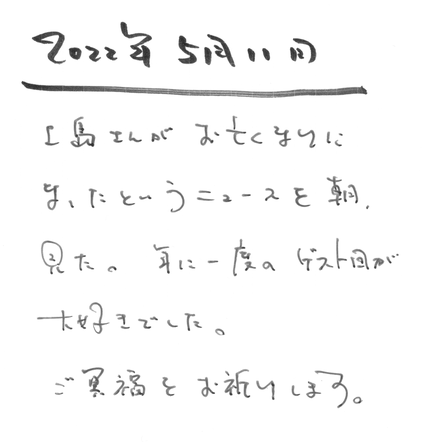 2022年5月11日
上島さんがお亡くなりに
なったというニュースを朝、
見た。年に一度のゲスト回が
大好きでした。
ご冥福をお祈りします。